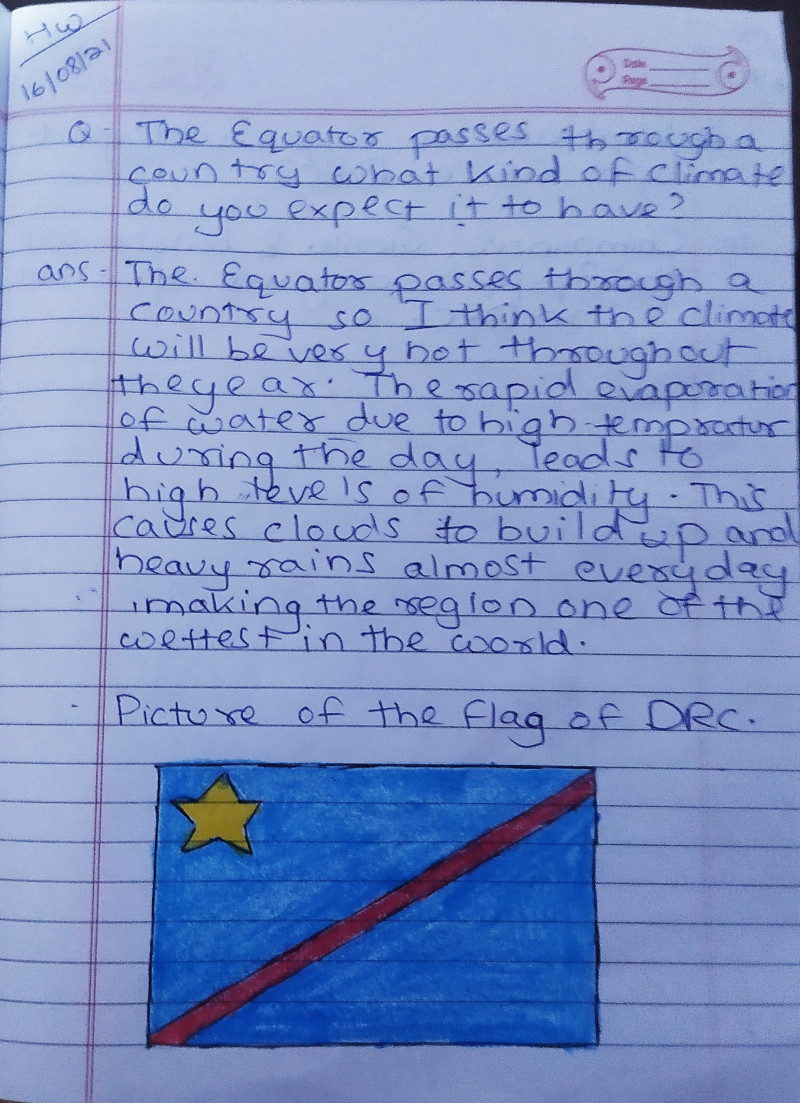 HW
16/08/21
Date
Page
Q- The Equator passes through a
country what kind of climate
do you expect it to have?
ans- The. Equator passes through a
country so I think the climate
will be very hot throughout
the year. The rapid evaporation
of water due to high tempratur
during the day, leads to
high levels of humidity. This
causes clouds to build up and
heavy rains almost everyday
, making the region one of the
wettest in the world.
- Picture of the flag of DRC.